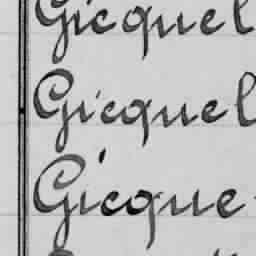 Gicquel
Gicquel
Gicque